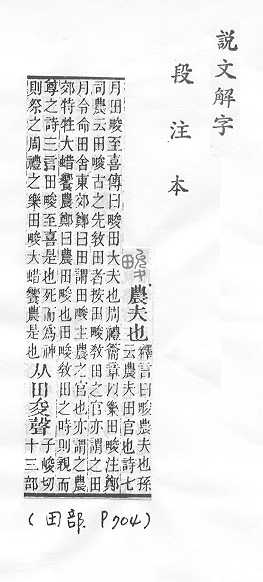 說文解字
段注本
農夫也
釋言曰畯農夫也孫
云農夫田官也詩七
月田畯至喜傳曰畯田大夫也周禮籥章以樂田畯注鄭
司農云田畯古之先敎田者按田畯敎田之官亦謂之田
月令命田舍東郊鄭曰田謂田畯主農之官也亦謂之農
郊特牲大蜡饗農鄭曰農田畯也田畯敎田之時則親而
尊之詩三言田畯至喜是也死而爲神
則祭之周禮之樂田畯大蜡饗農是也
从田夋聲
子峻切
十三部
(田部 P704)